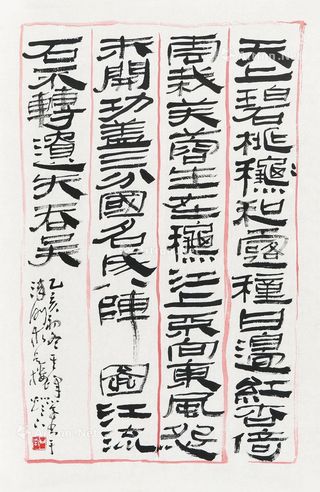 天上碧桃穐和露種日邊紅杏倚
雲栽芙蓉生在穐江上不向東風怨
未開功蓋三分國名成八陣圖江流
石不轉遺失吞吳
乙亥初冬